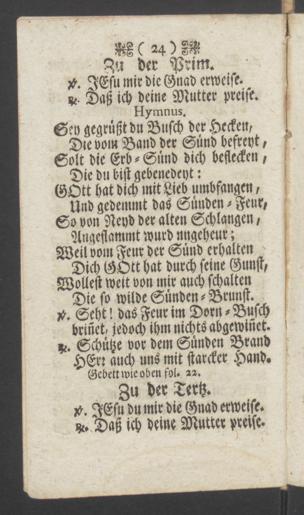 ( 24 )
Zu der Prim.
℣. JEsu mir die Gnad erweise.
℟. Daß ich deine Mutter preise.
Hymnus.
Sey gegrüßt du Busch der Hecken,
Die vom Band der Sünd befreyt,
Solt die Erb-Sünd dich beflecken,
Die du bist gebenedeyt:
GOtt hat dich mit Lieb umbfangen,
Und gedemmt das Sünden-Feur,
So von Neyd der alten Schlangen,
Angeflammt wurd ungeheur;
Weil vom Feur der Sünd erhalten
Dich GOtt hat durch seine Gunst,
Wollest weit von mir auch schalten
Die so wilde Sünden-Brunst.
℣. Seht! das Feur im Dorn-Busch
brin̄et, jedoch ihm nichts abgewin̄et.
℟. Schütze vor dem Sünden Brand
HErr auch uns mit starcker Hand.
Gebett wie oben fol. 22.
Zu der Tertz.
℣. JEsu du mir die Gnad erweise.
℟. Daß ich deine Mutter preise.